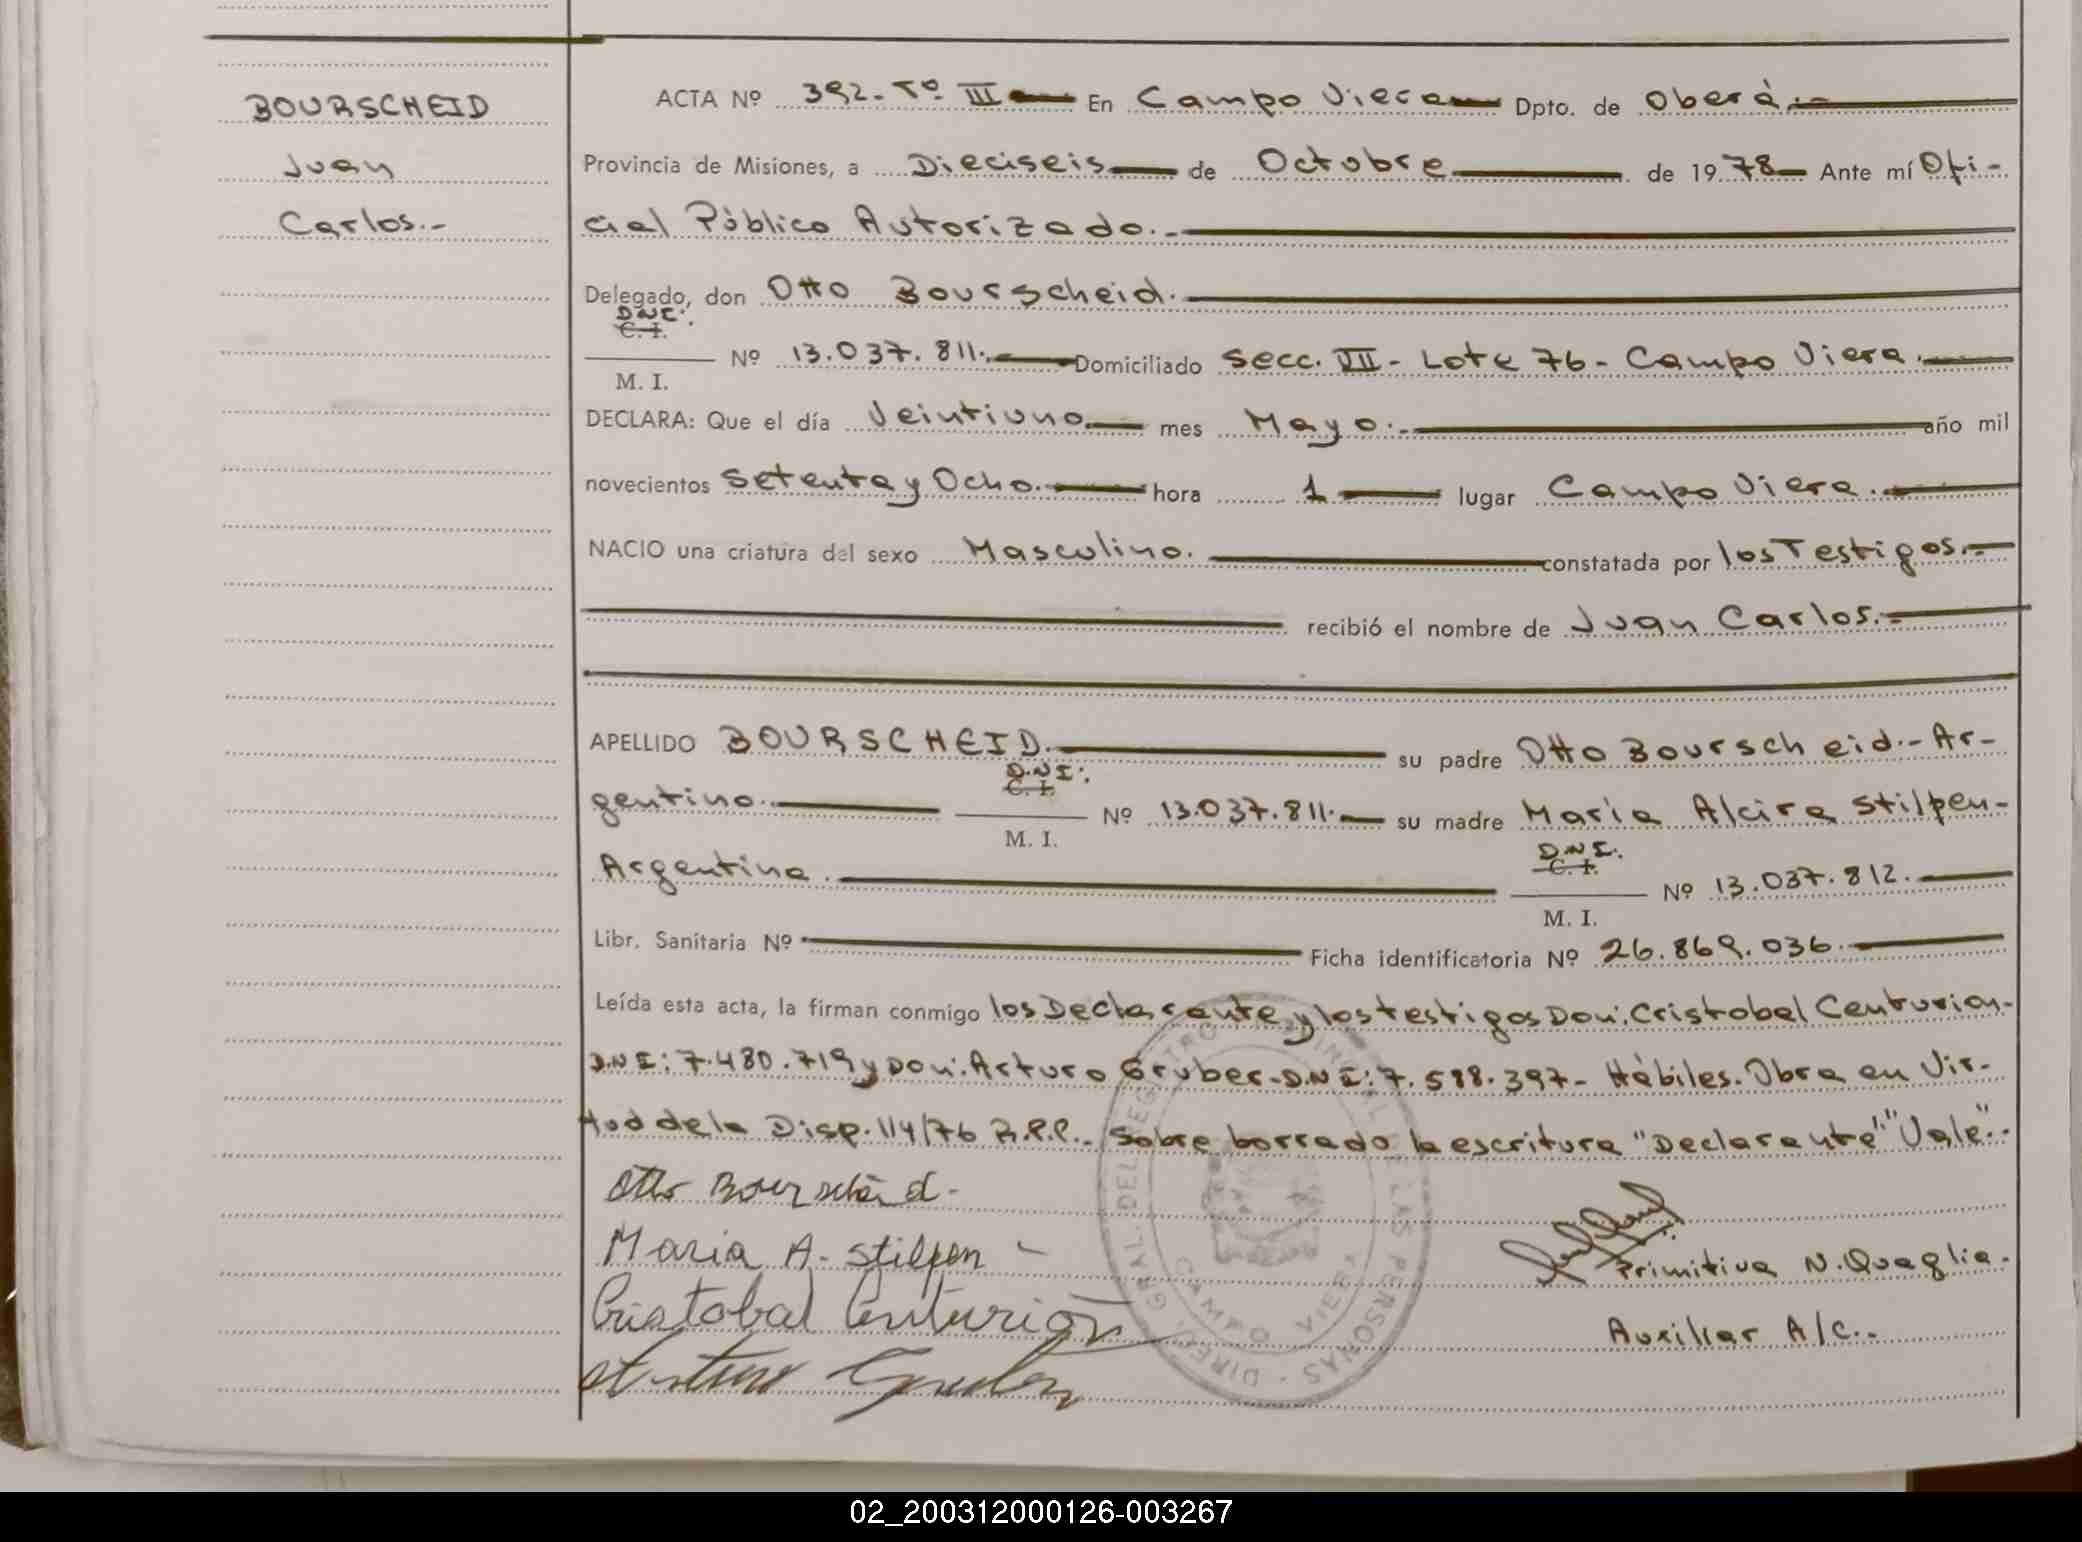 BOURSCHEID
Juan
Carlos.-
ACTA Nº 392- Tº III En Campo Viera Dpto. de Oberá.-
Provincia de Misiones, a Dieciseis de Octubre de 1978 Ante mí Ofi-
cial Público Autorizado.-
Delegado, don Otto Bourscheid.
D.N.I.:
C. I.
Nº 13.037.811.- Domiciliado Secc. VII- Lote 76- Campo Viera.
M. I.
DECLARA: Que el día Veintiuno mes Mayo.- año mil
novecientos Setenta y Ocho. hora 1 lugar Campo Viera.
NACIO una criatura del sexo Masculino. constatada por los Testigos.-
recibió el nombre de Juan Carlos.-
APELLIDO BOURSCHEID. su padre Otto Bourscheid.- Ar-
gentino. D.N.I.:
C. I.
Nº 13.037.811.- su madre María Alcira Stilpen-
M. I.
Argentina. D.N.I.:
C. I.
Nº 13.037.812.
M. I.
Libr. Sanitaria Nº Ficha identificatoria Nº 26.869.036.
Leída esta acta, la firman conmigo los Declarante y los testigos Don: Cristobal Centurion-
D.N.I: 7.480.719 y Don: Arturo Gruber- D.N.I: 7.588.397- Hábiles. Obra en Vir-
tud de la Disp. 114/76 R.P.P.- Sobre borrado la escritura "Declarante" "Vale".-
Otto Bourscheid.-
Maria A. Stilpen -
Cristobal Centurión
Arturo Gruber
Primitiva N. Quaglia.
Auxiliar A/C.-
DIREC. GRAL. DEL REGISTRO PROVINCIAL DE LAS PERSONAS
CAMPO VIERA
02_200312000126-003267